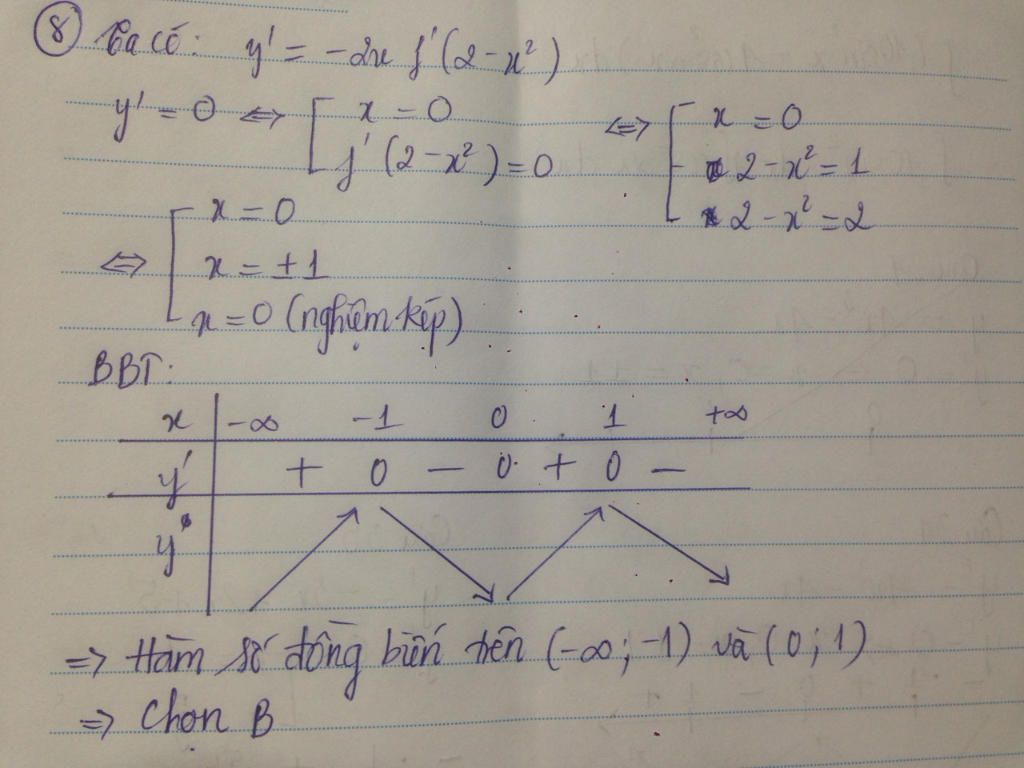 ⑧ Ta có: y' = -2x f'(2-x²)
y' = 0 ⇔ [ x = 0 ⇔ [ x = 0
f'(2-x²) = 0 2-x² = 1
2-x² = 2
⇔ [ x = 0
x = ±1
x = 0 (nghiệm kép)
BBT:
x -∞ -1 0 1 +∞
y' + 0 - 0 + 0 -
y
=> Hàm số đồng biến trên (-∞; -1) và (0; 1)
=> Chọn B